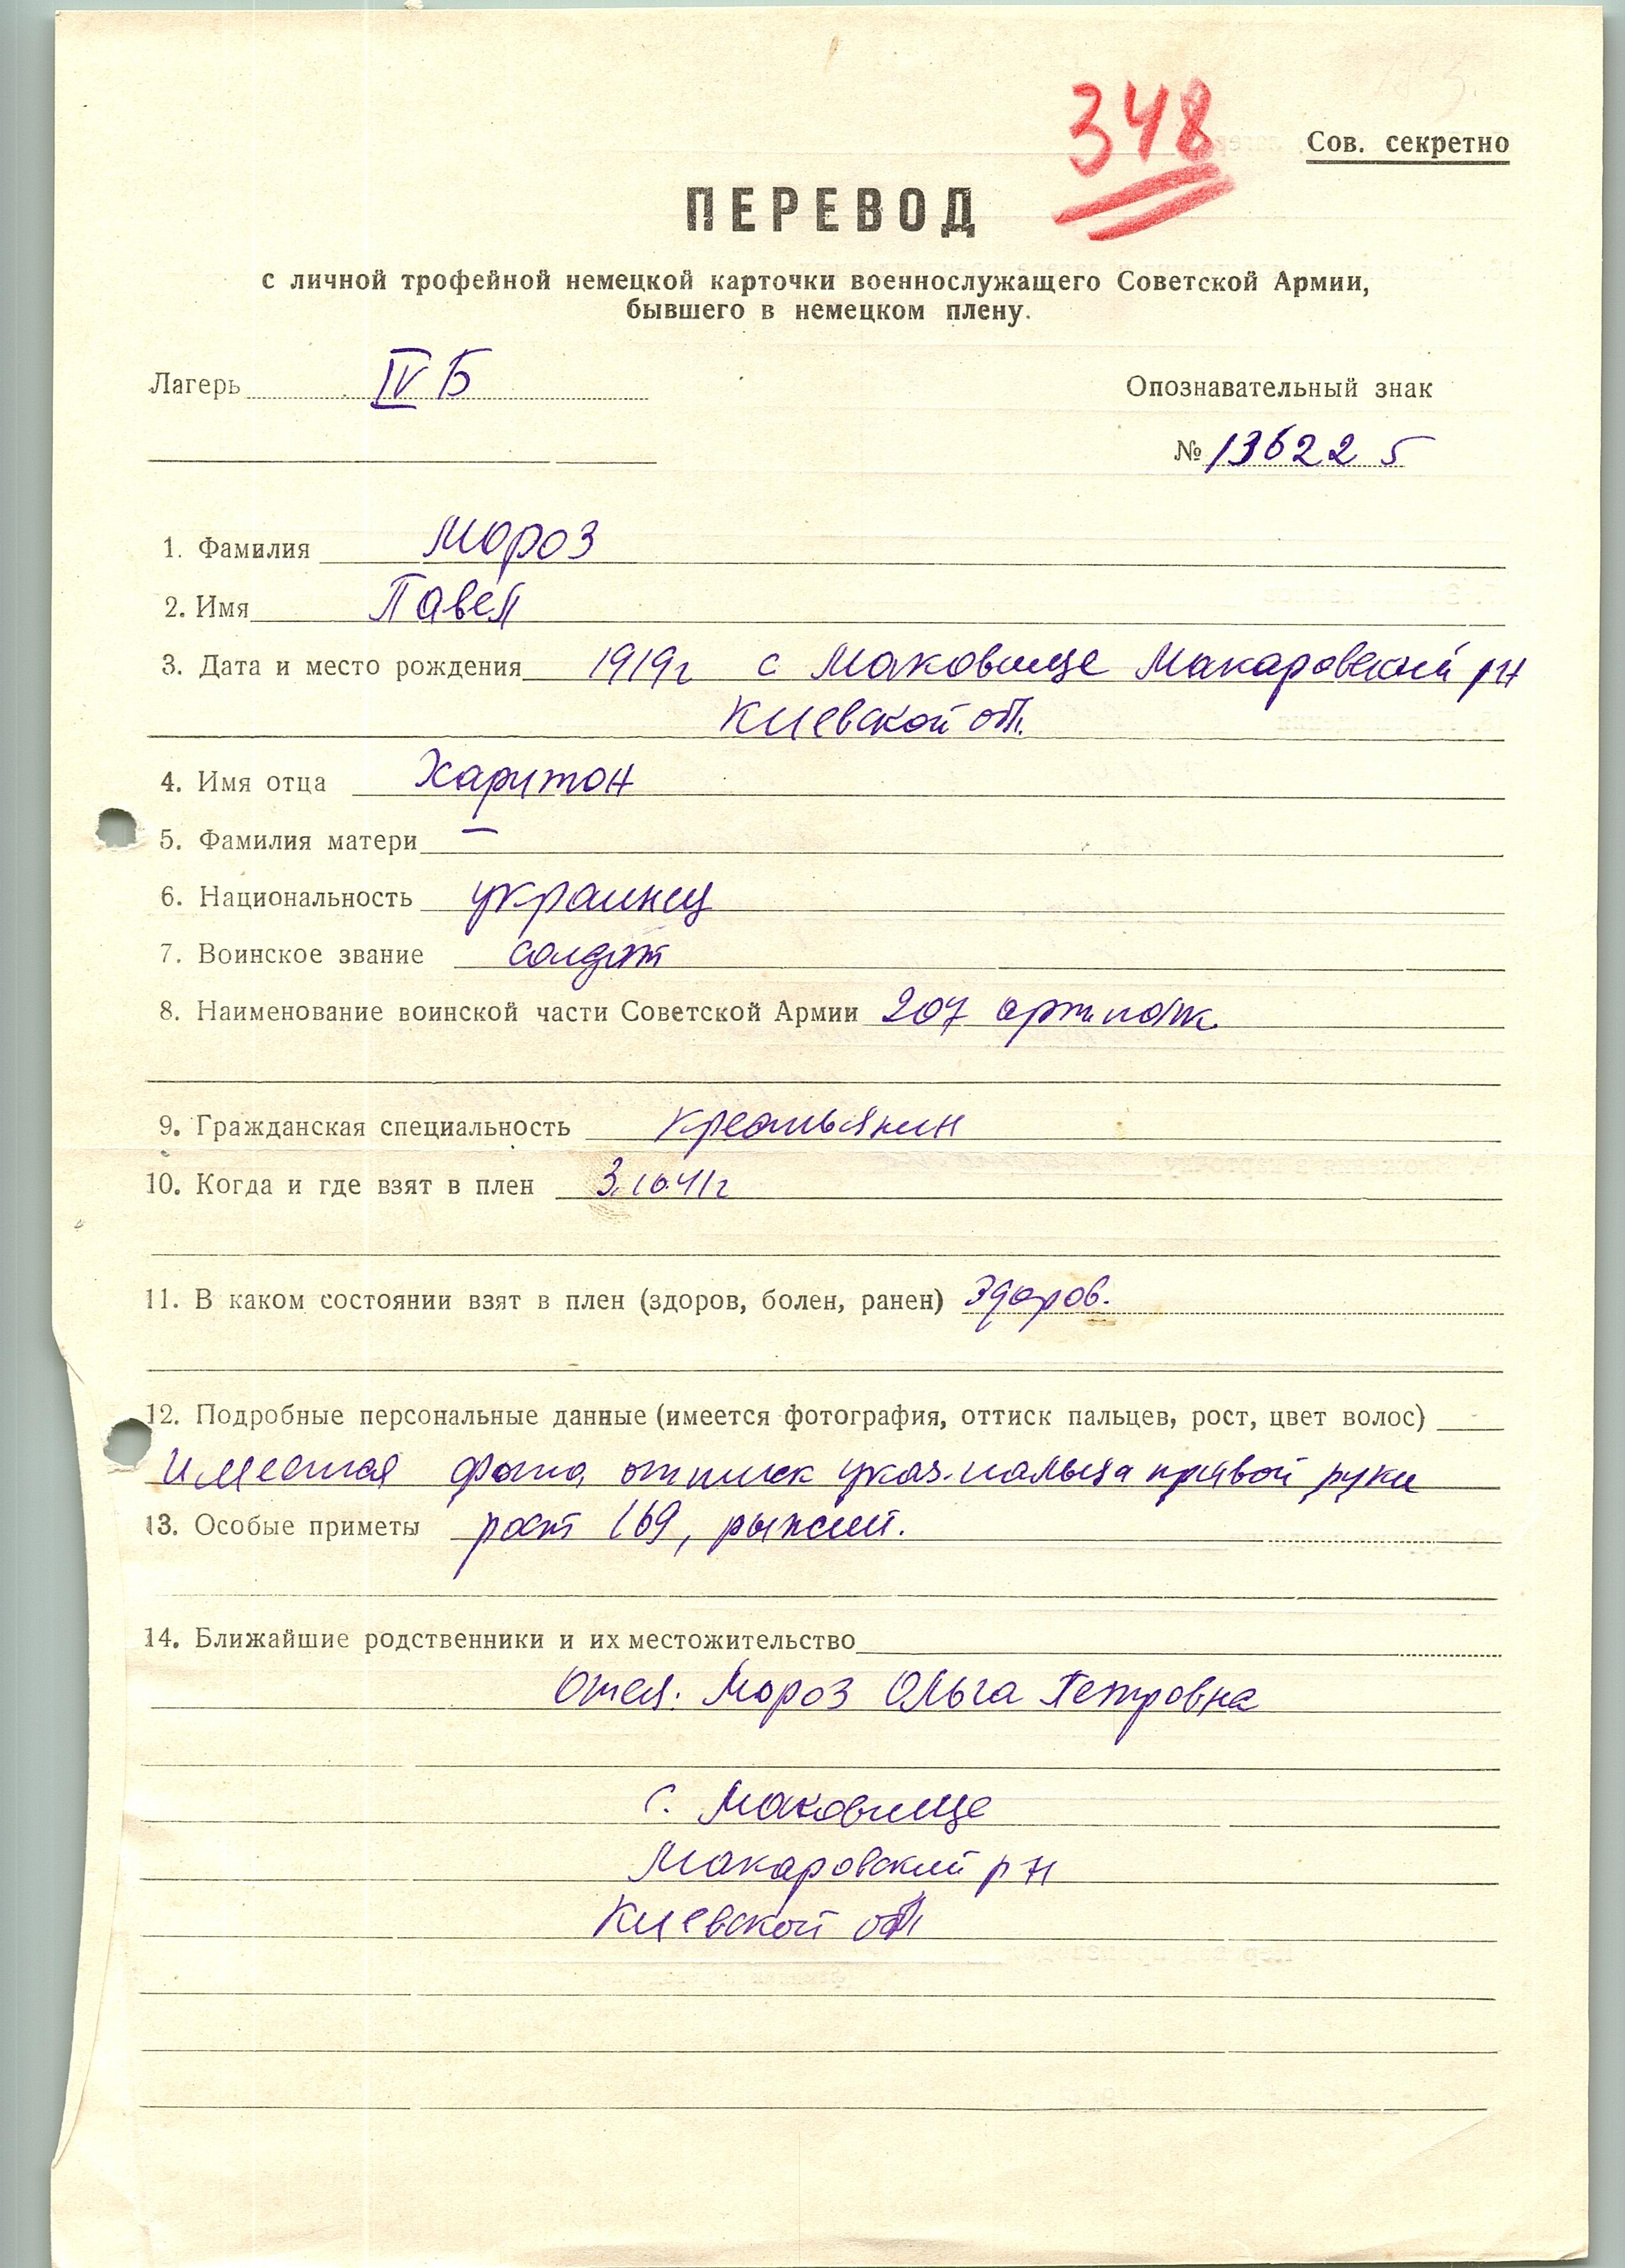 348
Сов. секретно
ПЕРЕВОД
с личной трофейной немецкой карточки военнослужащего Советской Армии,
бывшего в немецком плену.
Лагерь IV Б
Опознавательный знак
№ 136225
1. Фамилия Мороз
2. Имя Павел
3. Дата и место рождения 1919г с Маковище Макаровский р-н
Киевской обл.
4. Имя отца Харитон
5. Фамилия матери —
6. Национальность украинец
7. Воинское звание солдат
8. Наименование воинской части Советской Армии 207 арт. полк.
9. Гражданская специальность крестьянин
10. Когда и где взят в плен 3.10.41г
11. В каком состоянии взят в плен (здоров, болен, ранен) Здоров.
12. Подробные персональные данные (имеется фотография, оттиск пальцев, рост, цвет волос)
Имеется фото, оттиск указ. пальца правой руки
13. Особые приметы рост 169, рыжий.
14. Ближайшие родственники и их местожительство
Мороз Ольга Петровна
с. Маковище
Макаровский р-н
Киевской обл